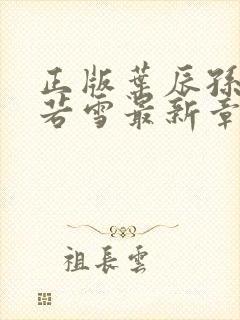 正版葉辰孫
若雪最新章
祖長雲